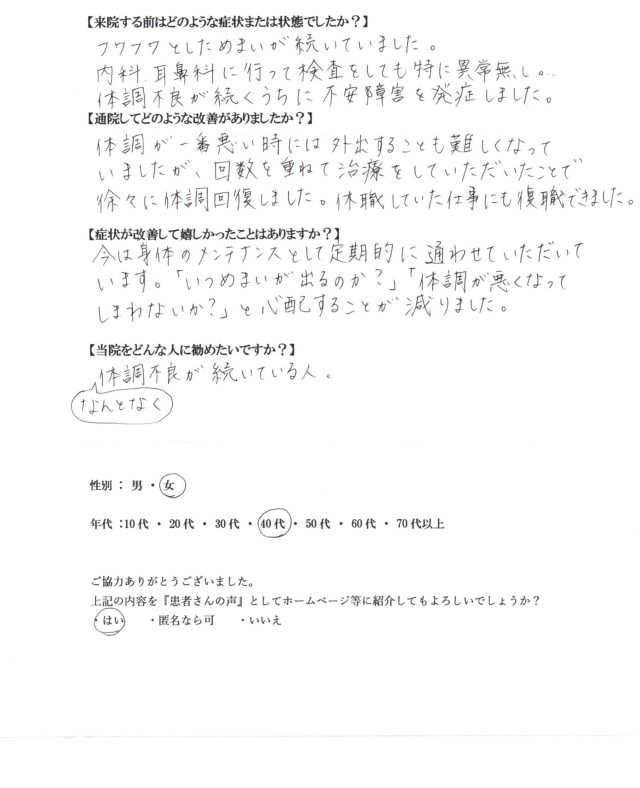 【来院する前はどのような症状または状態でしたか？】
フワフワとしためまいが続いていました。
内科、耳鼻科に行って検査をしても特に異常無し。
体調不良が続くうちに不安障害を発症しました。
【通院してどのような改善がありましたか？】
体調が一番悪い時には外出することも難しくなって
いましたが、回数を重ねて治療をしていただいたことで
徐々に体調回復しました。休職していた仕事にも復職できました。
【症状が改善して嬉しかったことはありますか？】
今は身体のメンテナンスとして定期的に通わせていただいて
います。「いつめまいが出るのか？」「体調が悪くなって
しまわないか？」と心配することが減りました。
【当院をどんな人に勧めたいですか？】
体調不良が続いている人。
なんとなく
性別：男・女
年代：10代・20代・30代・40代・50代・60代・70代以上
ご協力ありがとうございました。
上記の内容を『患者さんの声』としてホームページ等に紹介してもよろしいでしょうか？
・はい　・匿名なら可　・いいえ